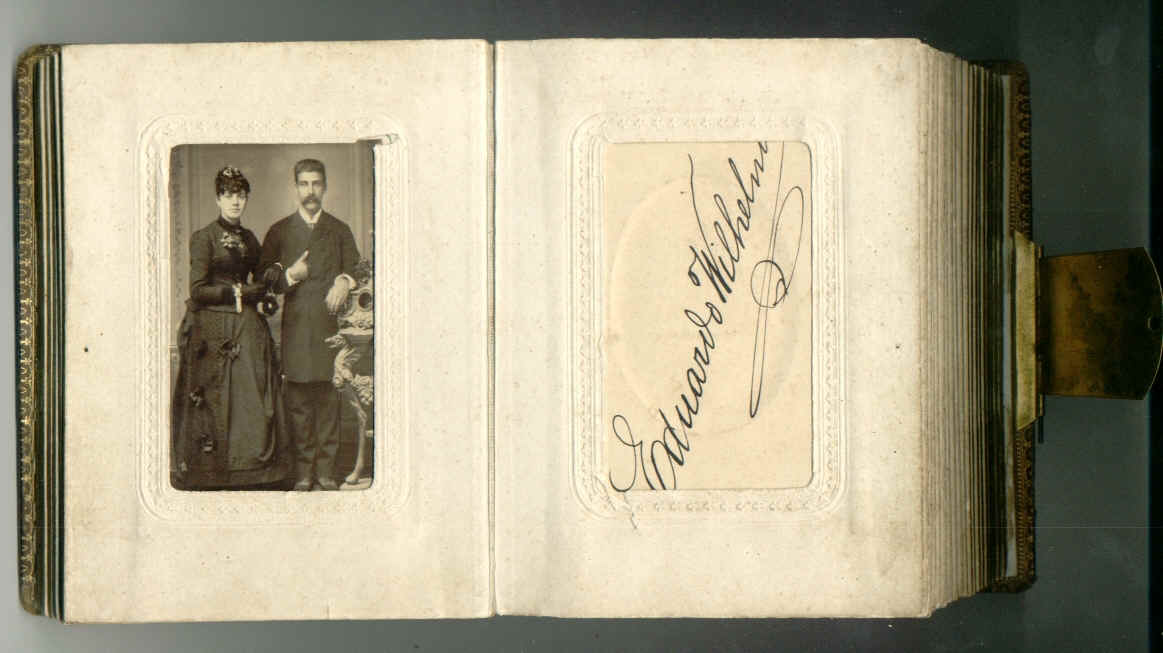 Eduardo Wilhelmi